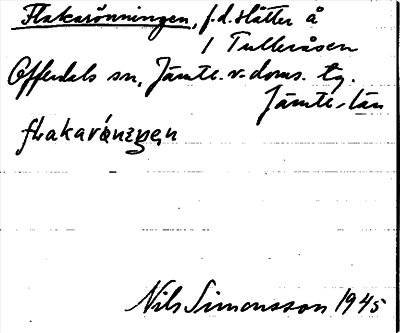 Flakarönningen, f.d. slåtter å
/ Tulleråsen
Offerdals sn, Jämtl. v. doms. tg.
Jämtl. län
flakarǿningen
Nils Simonsson 1945